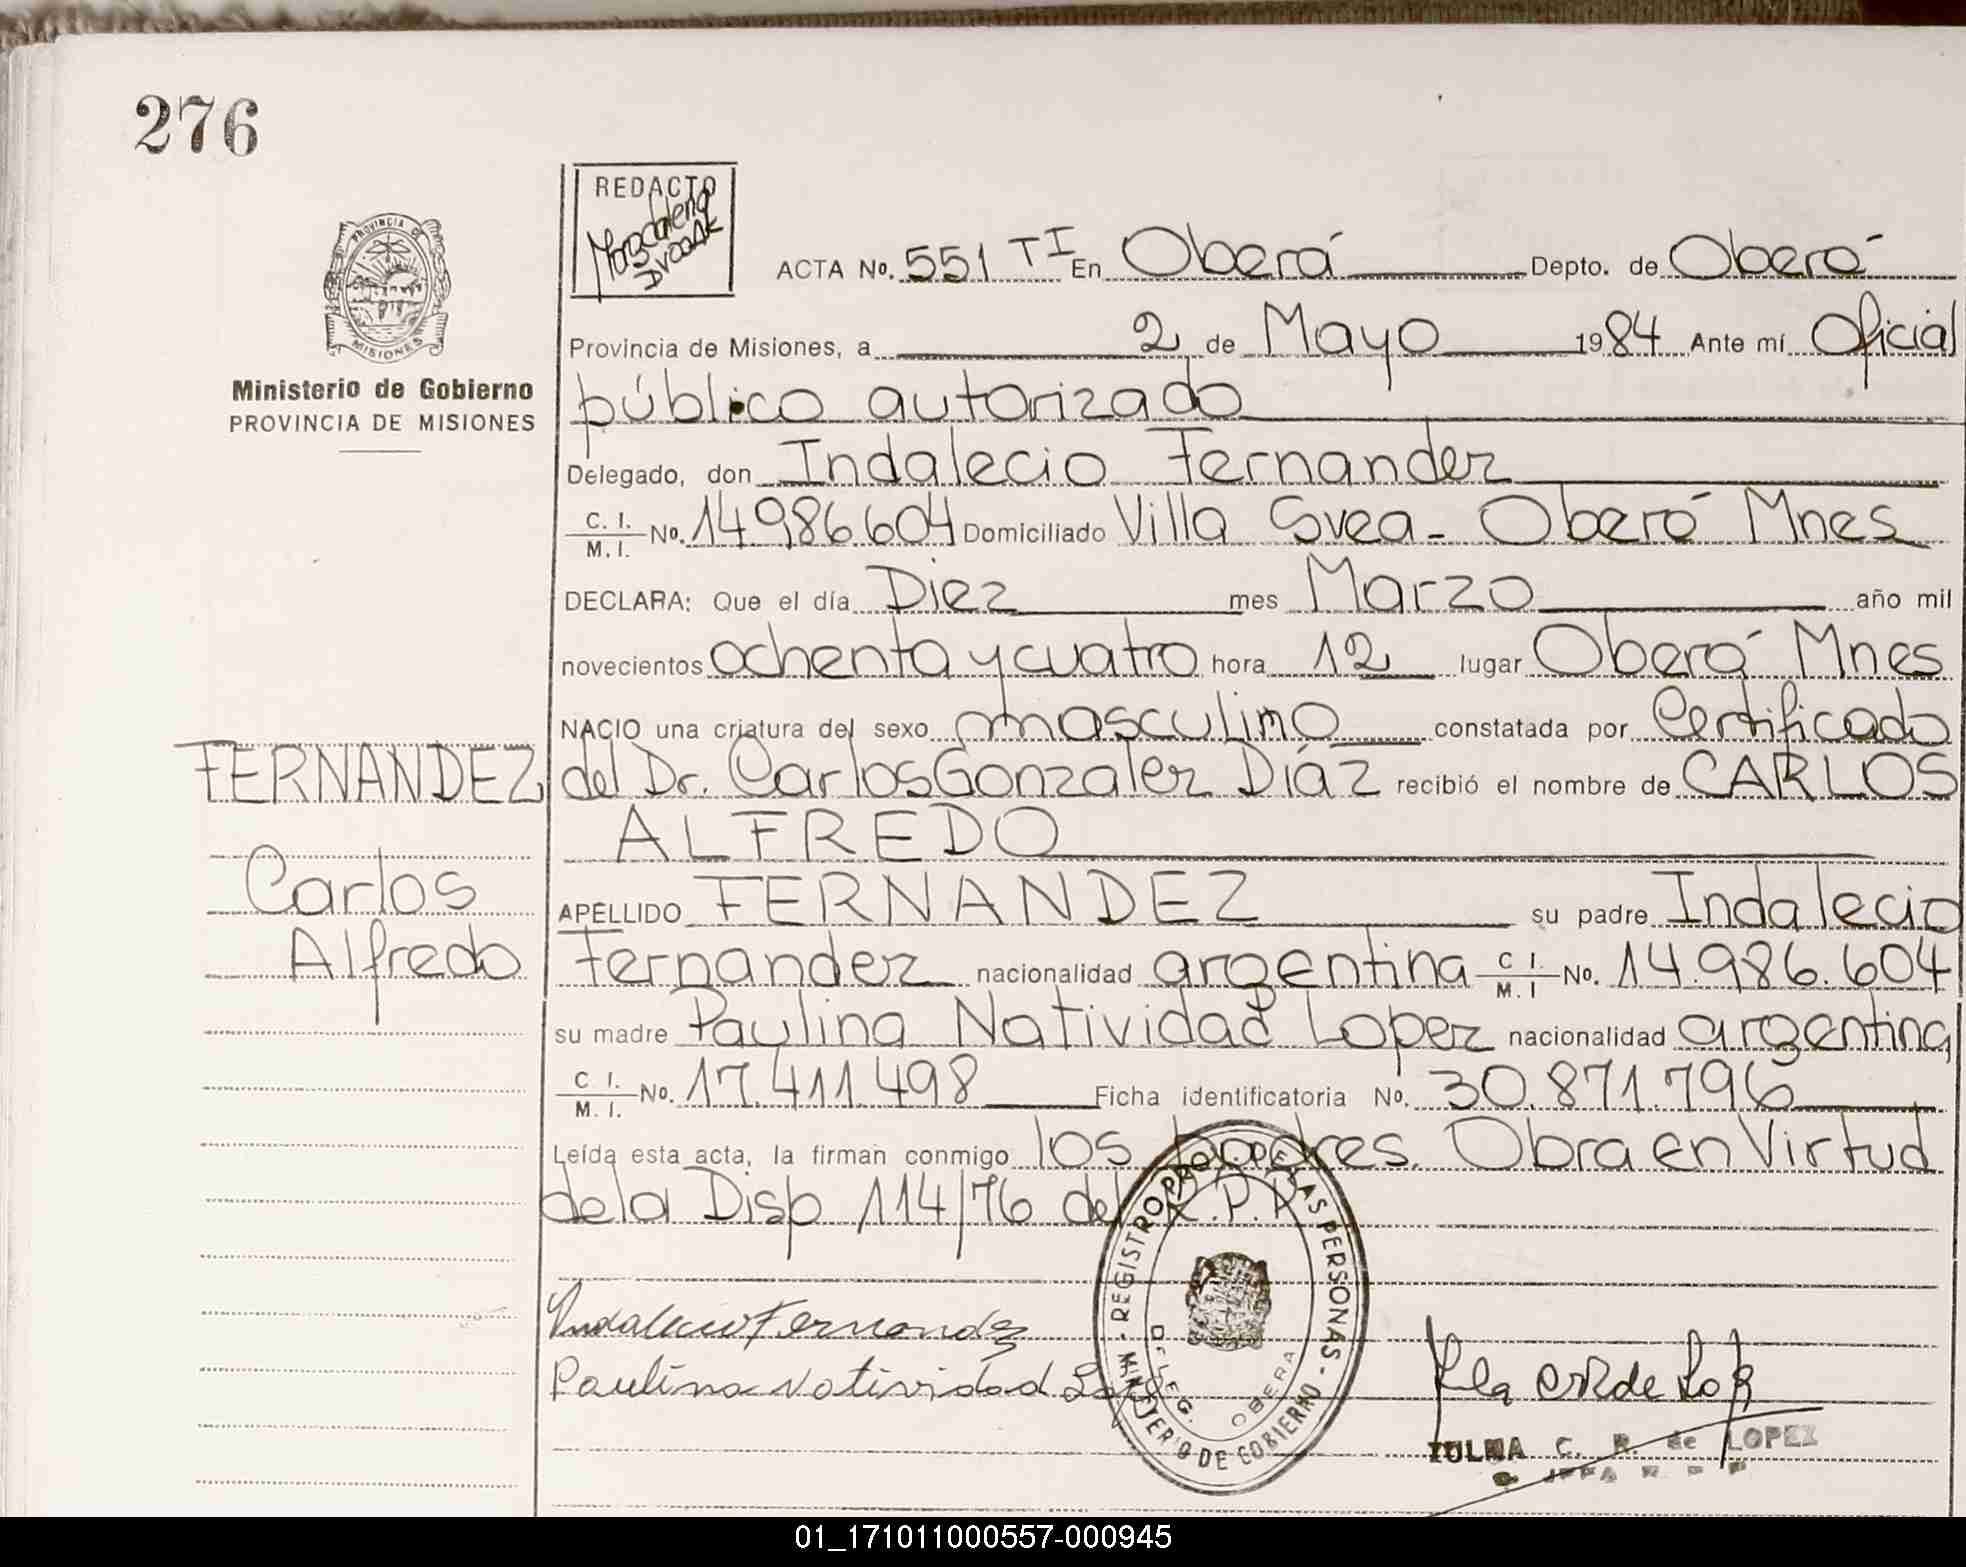 276
REDACTO
Magdalena
Dvorak
PROVINCIA DE
MISIONES
Ministerio de Gobierno
PROVINCIA DE MISIONES
ACTA No. 551 TI En Oberá Depto. de Oberá
Provincia de Misiones, a 2 de Mayo 1984 Ante mí Oficial
público autorizado
Delegado, don Indalecio Fernandez
C. I. / M. I. No. 14.986.604 Domiciliado Villa Svea - Oberá Mnes
DECLARA: Que el día Diez mes Marzo año mil
novecientos ochenta y cuatro hora 12 lugar Oberá Mnes
NACIO una criatura del sexo masculino constatada por Certificado
del Dr. Carlos Gonzalez Díaz recibió el nombre de CARLOS
ALFREDO
APELLIDO FERNANDEZ su padre Indalecio
Fernandez nacionalidad argentina C I. / M. I No. 14.986.604
su madre Paulina Natividad Lopez nacionalidad argentina
C I. / M. I. No. 17.411.498 Ficha identificatoria No. 30.871.796
Leída esta acta, la firman conmigo los padres. Obra en Virtud
de la Disp 114/76 del R.P.P.
FERNANDEZ
Carlos
Alfredo
Indalecio Fernandez
Paulina Natividad
REGISTRO PROV. DE LAS PERSONAS - MINISTERIO DE GOBIERNO -
DELEG. OBERA
de Lopez
ZULMA C. R. de LOPEZ
01_171011000557-000945